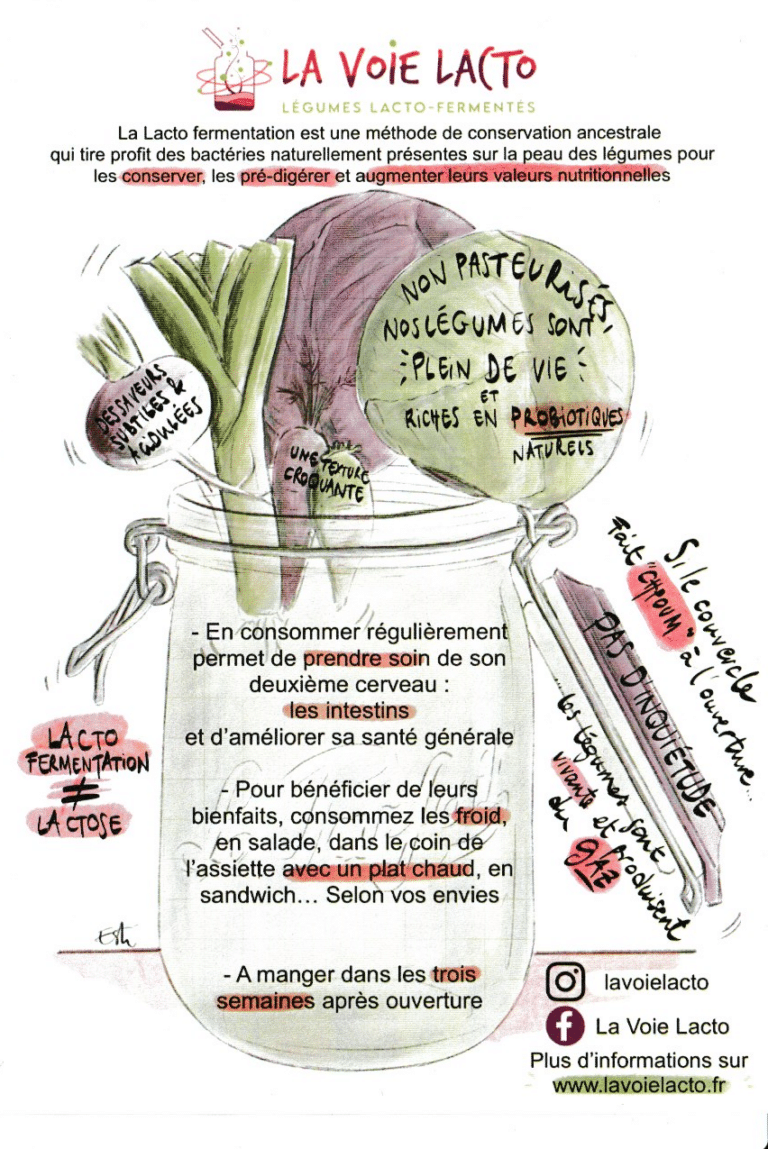 LA VOIE LACTO
LÉGUMES LACTO-FERMENTÉS
La Lacto fermentation est une méthode de conservation ancestrale
qui tire profit des bactéries naturellement présentes sur la peau des légumes pour
les conserver, les pré-digérer et augmenter leurs valeurs nutritionnelles
NON PASTEURISÉS,
NOS LÉGUMES SONT
PLEIN DE VIE
ET
RICHES EN PROBIOTIQUES
NATURELS
DES SAVEURS
SUBTILES &
ACIDULÉES
UNE TEXTURE
CROQUANTE
- En consommer régulièrement
permet de prendre soin de son
deuxième cerveau :
les intestins
et d'améliorer sa santé générale
- Pour bénéficier de leurs
bienfaits, consommez les froid,
en salade, dans le coin de
l'assiette avec un plat chaud, en
sandwich... Selon vos envies
- A manger dans les trois
semaines après ouverture
LACTO
FERMENTATION
≠
LACTOSE
Si le couvercle
Fait "CHPOUM" à l'ouverture...
PAS D'INQUIÉTUDE
... les légumes sont
vivants et produisent
du GAZ
lavoielacto
La Voie Lacto
Plus d'informations sur
www.lavoielacto.fr